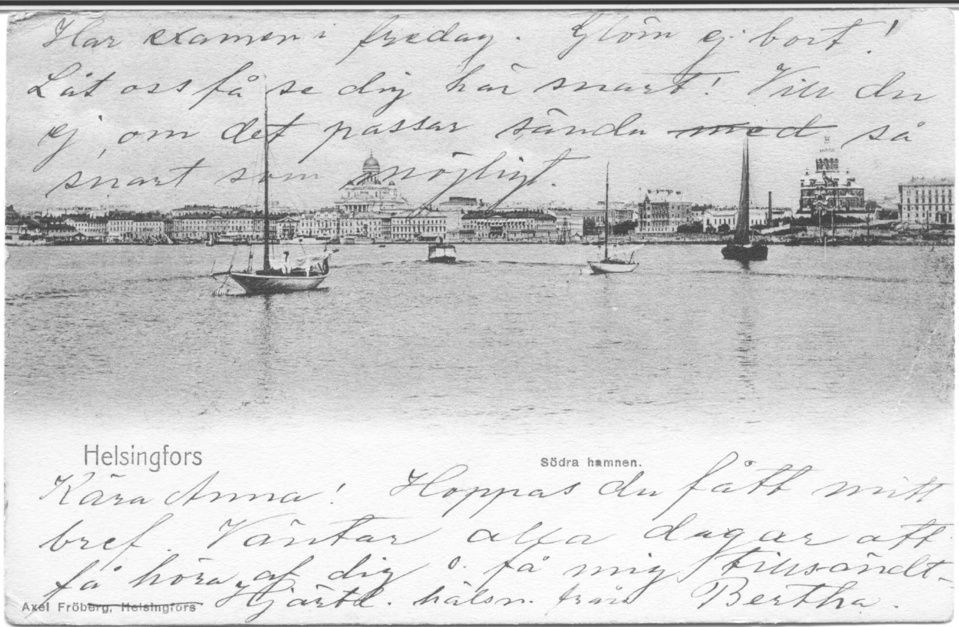 Har examen i fredag. Glöm ej bort!
Låt oss få se dig här snart! Vill du
ej, om det passar sända med så
snart som möjligt.
Helsingfors
Södra hamnen.
Kära Anna! Hoppas du fått mitt
bref. Väntar alla dagar att
få höra af dig o. få mig tillsändt.
Hjärtl. hälsn. från Bertha.
Axel Fröberg, Helsingfors